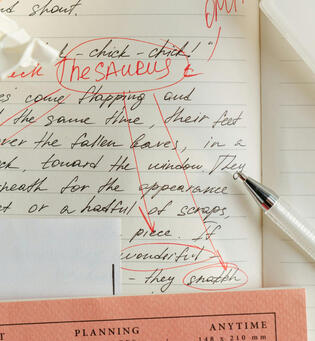 nd shout.
OMIT
- chick - chick! "
THESAURUS
es come flapping and
the same time, their feet
ver the fallen leaves, in a
ck, toward the window. They
neath for the appearance
et or a hatful of scraps,
piece. If
wonderful
- they snatch
T PLANNING ANYTIME
148 x 210 mm